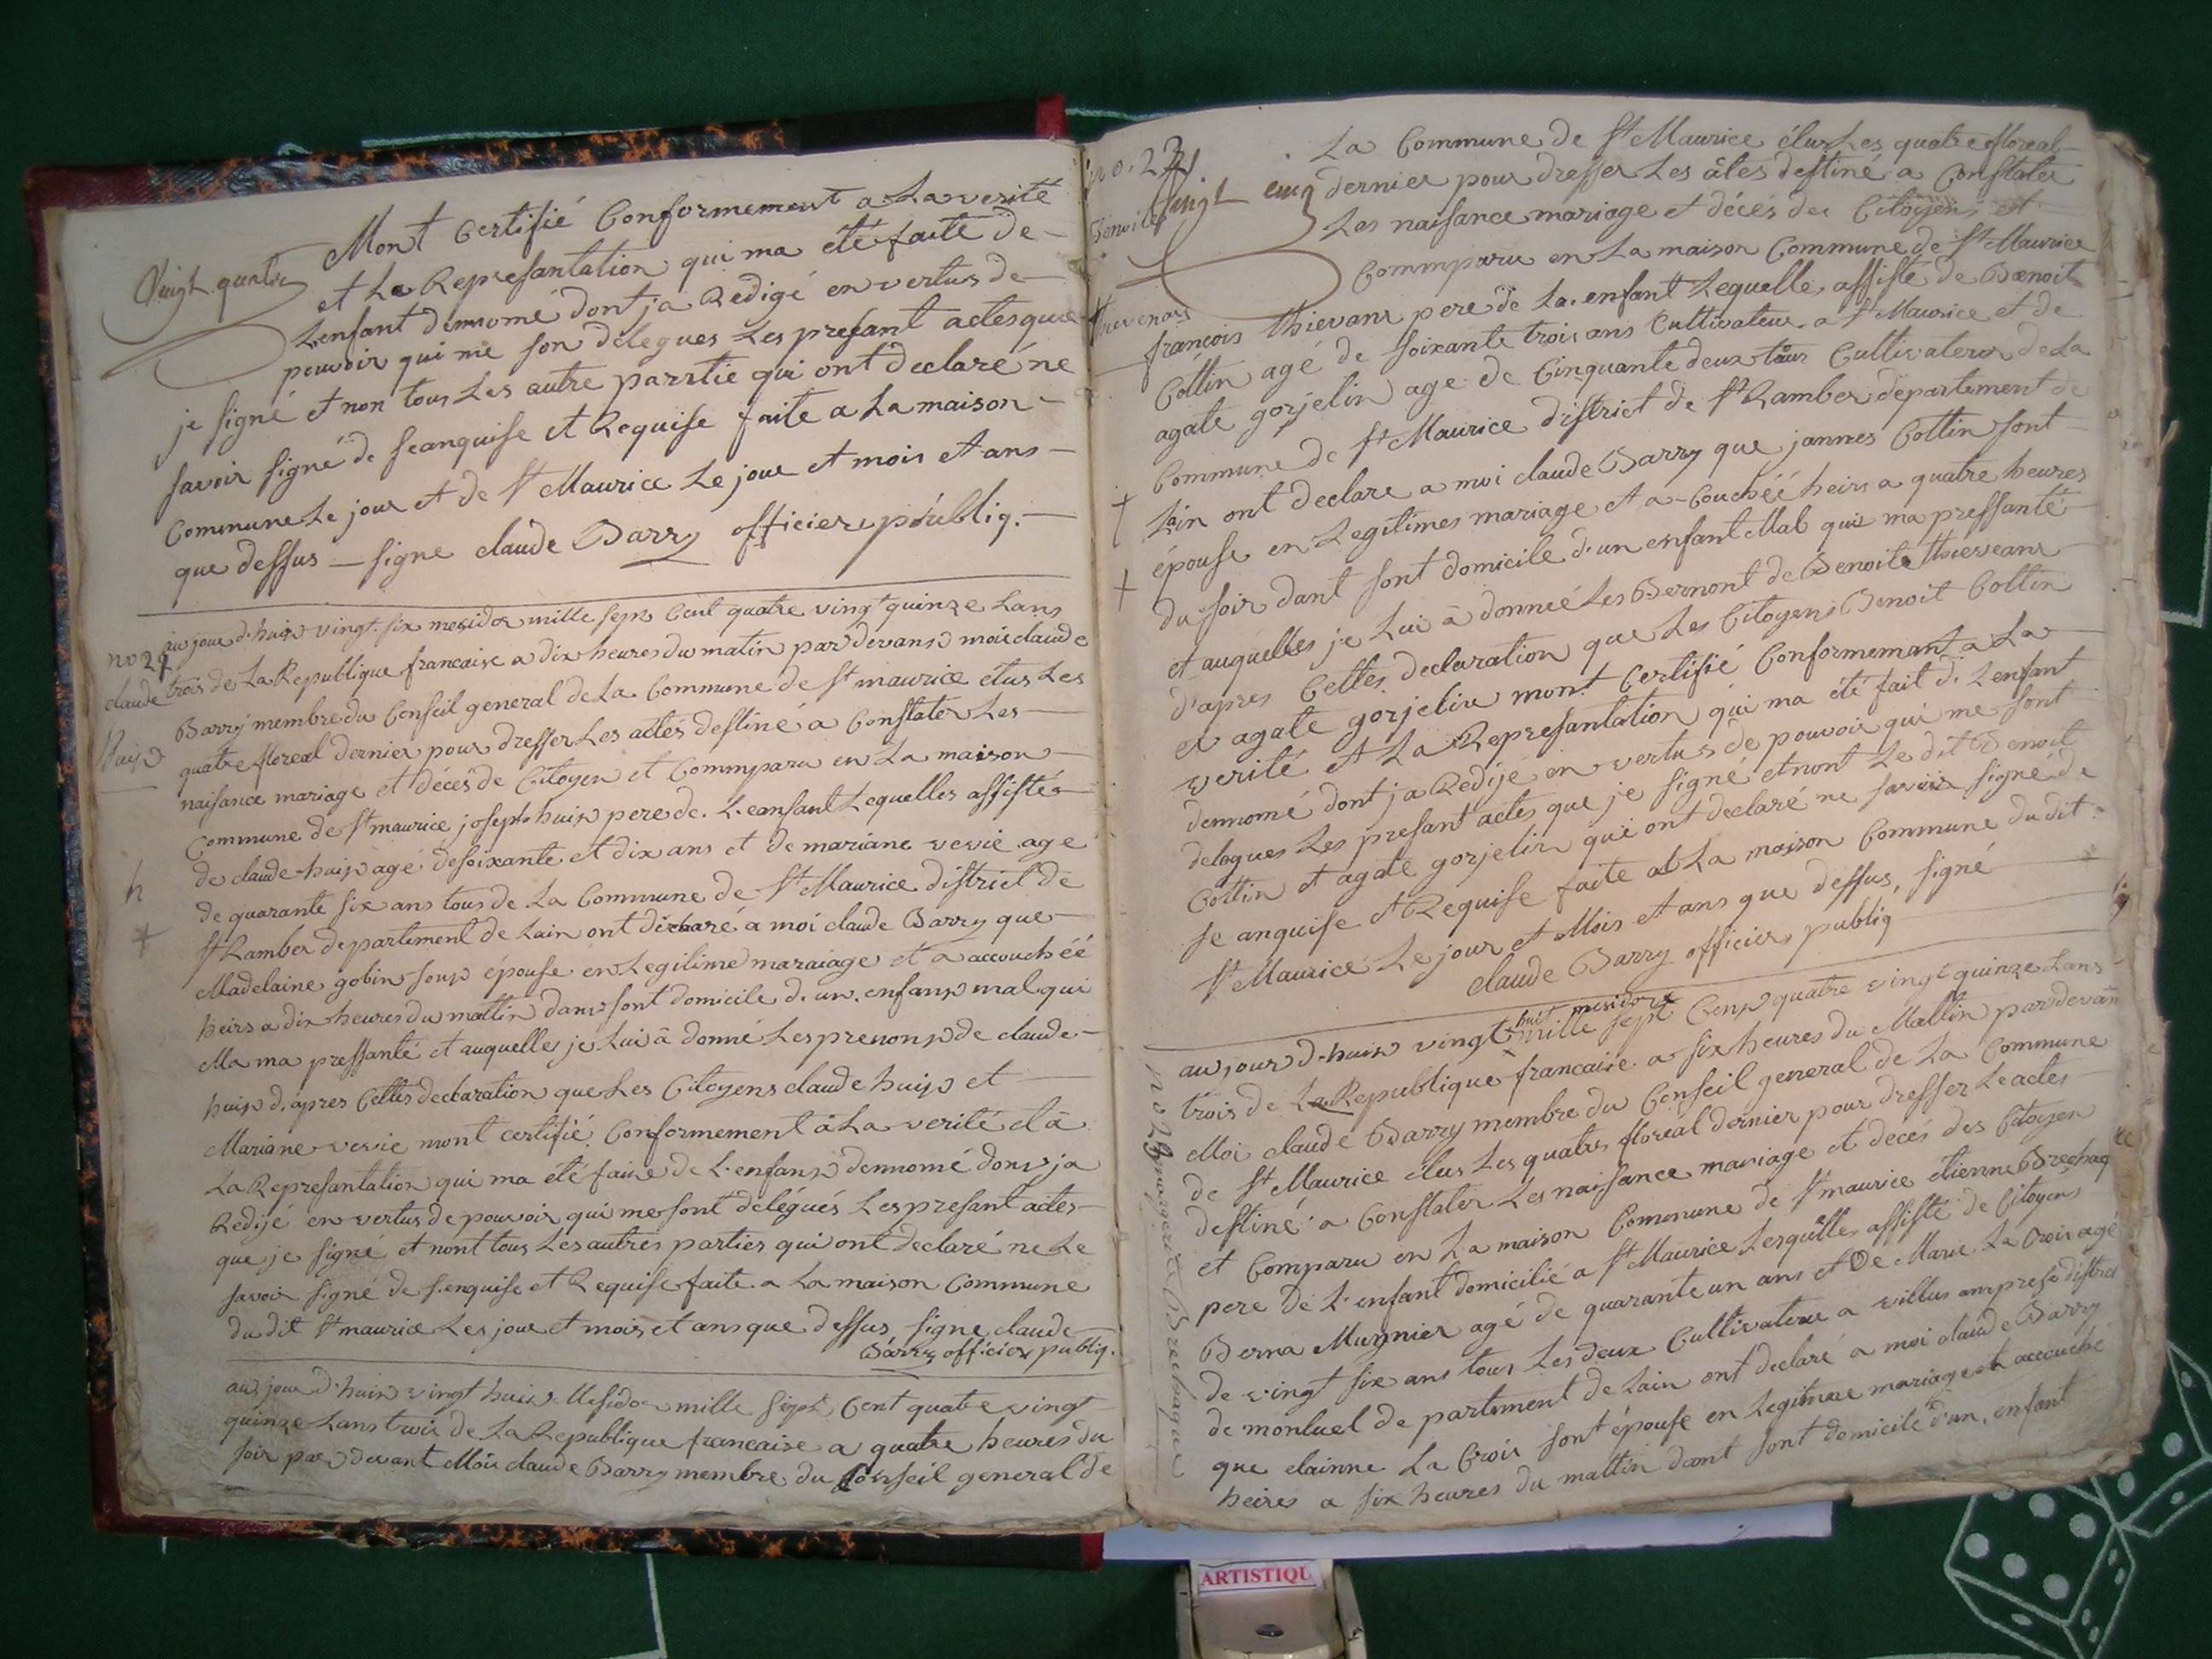 Vingt quatre
Mont Certifié Conformement a La verité
et La Represantation qui ma été faite de
Lenfant dennomé dont ja Redigé en vertus de
pouvoir qui me son delegues Les presant actes que
je signé et non tous Les autre parrtie qui ont declaré ne
savoir signé de seanquise et Requise faite a La maison
Commune Le jour et de St Maurice Le jour et mois et ans
que dessus signe claude Barry officiere publiq.
no 22
claude
huip
au jour d'huip vingt six mesidor mille sept Cent quatre vingt quinze Lans
trois de La Republique francaise a dix heures du matin par devans moi claude
Barry membre du Conseil general de La Commune de St maurice élus Les
quatre floreal dernier pour dresser Les actes destiné a Constater Les
naisance mariage et décés de Citoyen et Commparu en La maison
Commune de St maurice joseph huip pere de L'enfant Lequelles assistés
de claude huip agé de soixante et dix ans et de mariane vevie age
de quarante six ans tous de La Commune de St Maurice district de
St Ramber departement de Lain ont déclaré a moi claude Barry que
Madelaine gobin soup épouse en Legitime maraiage et a accouchéé
heirs a dix heures du mattin dans sont domicile d'un enfanp mal qui
Ma ma pressanté et auquelles je Lui â donné Les prenonp de claude
huip d'apres Celtes declaration que Les Citoyens claude huip et
Mariane vevie mont certifié Conformement â La verité et â
La Represantation qui ma été faire de L'enfanp dennomé donp ja
Redijé en vertus de pouvoir qui me sont delégués Les presant actes
que je signé et nont tous Les autres parties qui ont declaré ne Le
savoir signé de s'enquise et Requise faite a La maison Commune
du dit St maurice Les jour et mois et ans que dessus signe claude
Barry officier publiq.
au jour d'huip vingt huip Mesidor mille sept Cent quatre vingt
quinze Lans trois de La Republique francaise a quatre heures du
soir par devant Moi claude Barry membre du Conseil general de
no. 24
Vingt cinq
Benoite
thievenars
La Commune de St Maurice élus Les quatre floreal
dernier pour dresser Les âtes destiné a Constater
Les naisance mariage et décés des Citoyens et
Commparu en La maison Commune de St Maurice
francois thievans pere de La enfant Lequelles assisté de Benoit
Cottin agé de soixante trois ans Cultivateur a St Maurice et de
agate gorjelin age de Cinquante deux tous Cultivateur de La
Commune de St Maurice district de St Ramber departement de
Lain ont declare a moi claude Barry que jannes Cottin sont
épouse en Legitimes mariage et a Couchéé heirs a quatre heures
du soir dant sont domicile d'un enfant Mal qui ma pressanté
et auquelles je Lui â donneé Les Bernont de Benoite thieveans
d'apres Celtes declaration que Les Citogens Benoit Cottin
et agate gorjelin mont Certifié Conformemant a La
verité et La Represantation qui ma été fait d. Lenfant
dennomé dont ja Redijé en vertus de pouvoir qui me sont
delogues Les presant actes que je signé et nont Le dit Benoit
Cottin et agate gorjelin qui ont declaré ne savoir signé de
se anquise et Requise faite a La maison Commune du dit
St Maurice Le jour et Mois et ans que dessus, signé
claude Barry officier publiq
no 25 margerite Brechaque
huit mesidore
au jour d'huip vingt mille sept Cenp quatre vingt quinze Lans
trois de La Republique francaise a six heures du Mattin par devan
Moi claude Barry membre du Conseil general de La Commune
de St Maurice élus Les quatre floréal dernier pour dresser Le actes
destiné a Constater Les naisance mariage et decés des Citoyen
et Comparu en La maison Commune de St maurice étienne Brechaq
pere de L'enfant domicilié a St Maurice Lesquelles assisté de Citoyens
Berna Munnier agé de quarante un ans et de Marie La Croix agé
de vingt six ans tous Les deux Cultivateur a villus amprese district
de monluel de partement de Lain ont declaré a moi claude Barry
que elainne La Croix sont épouse en Legitmae mariage et accouché
heires a six heures du mattin dant sont domicile d'un enfant
ARTISTIQU